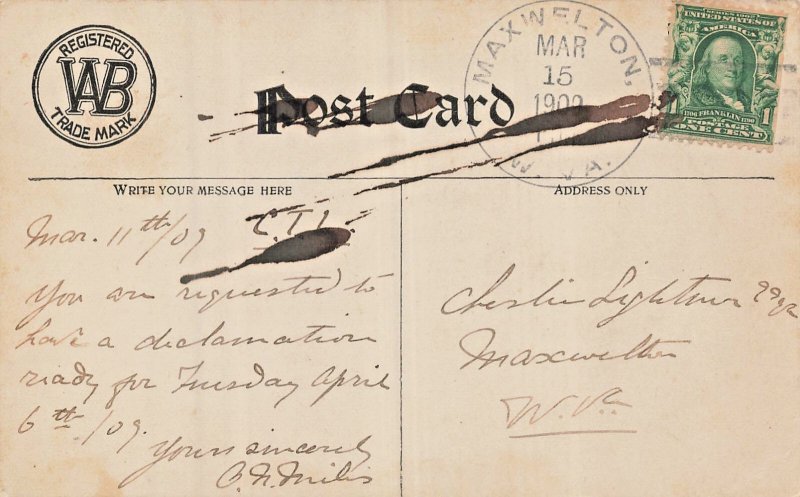 REGISTERED
WAB
TRADE MARK
Post Card
MAXWELTON,
MAR
15
1909
W. VA.
SERIES 1902
UNITED STATES OF
1706 FRANKLIN 1790
POSTAGE
1 ONE CENT 1
WRITE YOUR MESSAGE HERE
Mar. 11th/09
You are requested to
have a declamation
ready for Tuesday April
6th/09.
Yours sincerely
ADDRESS ONLY
Lightner
Maxwelton
W. Va